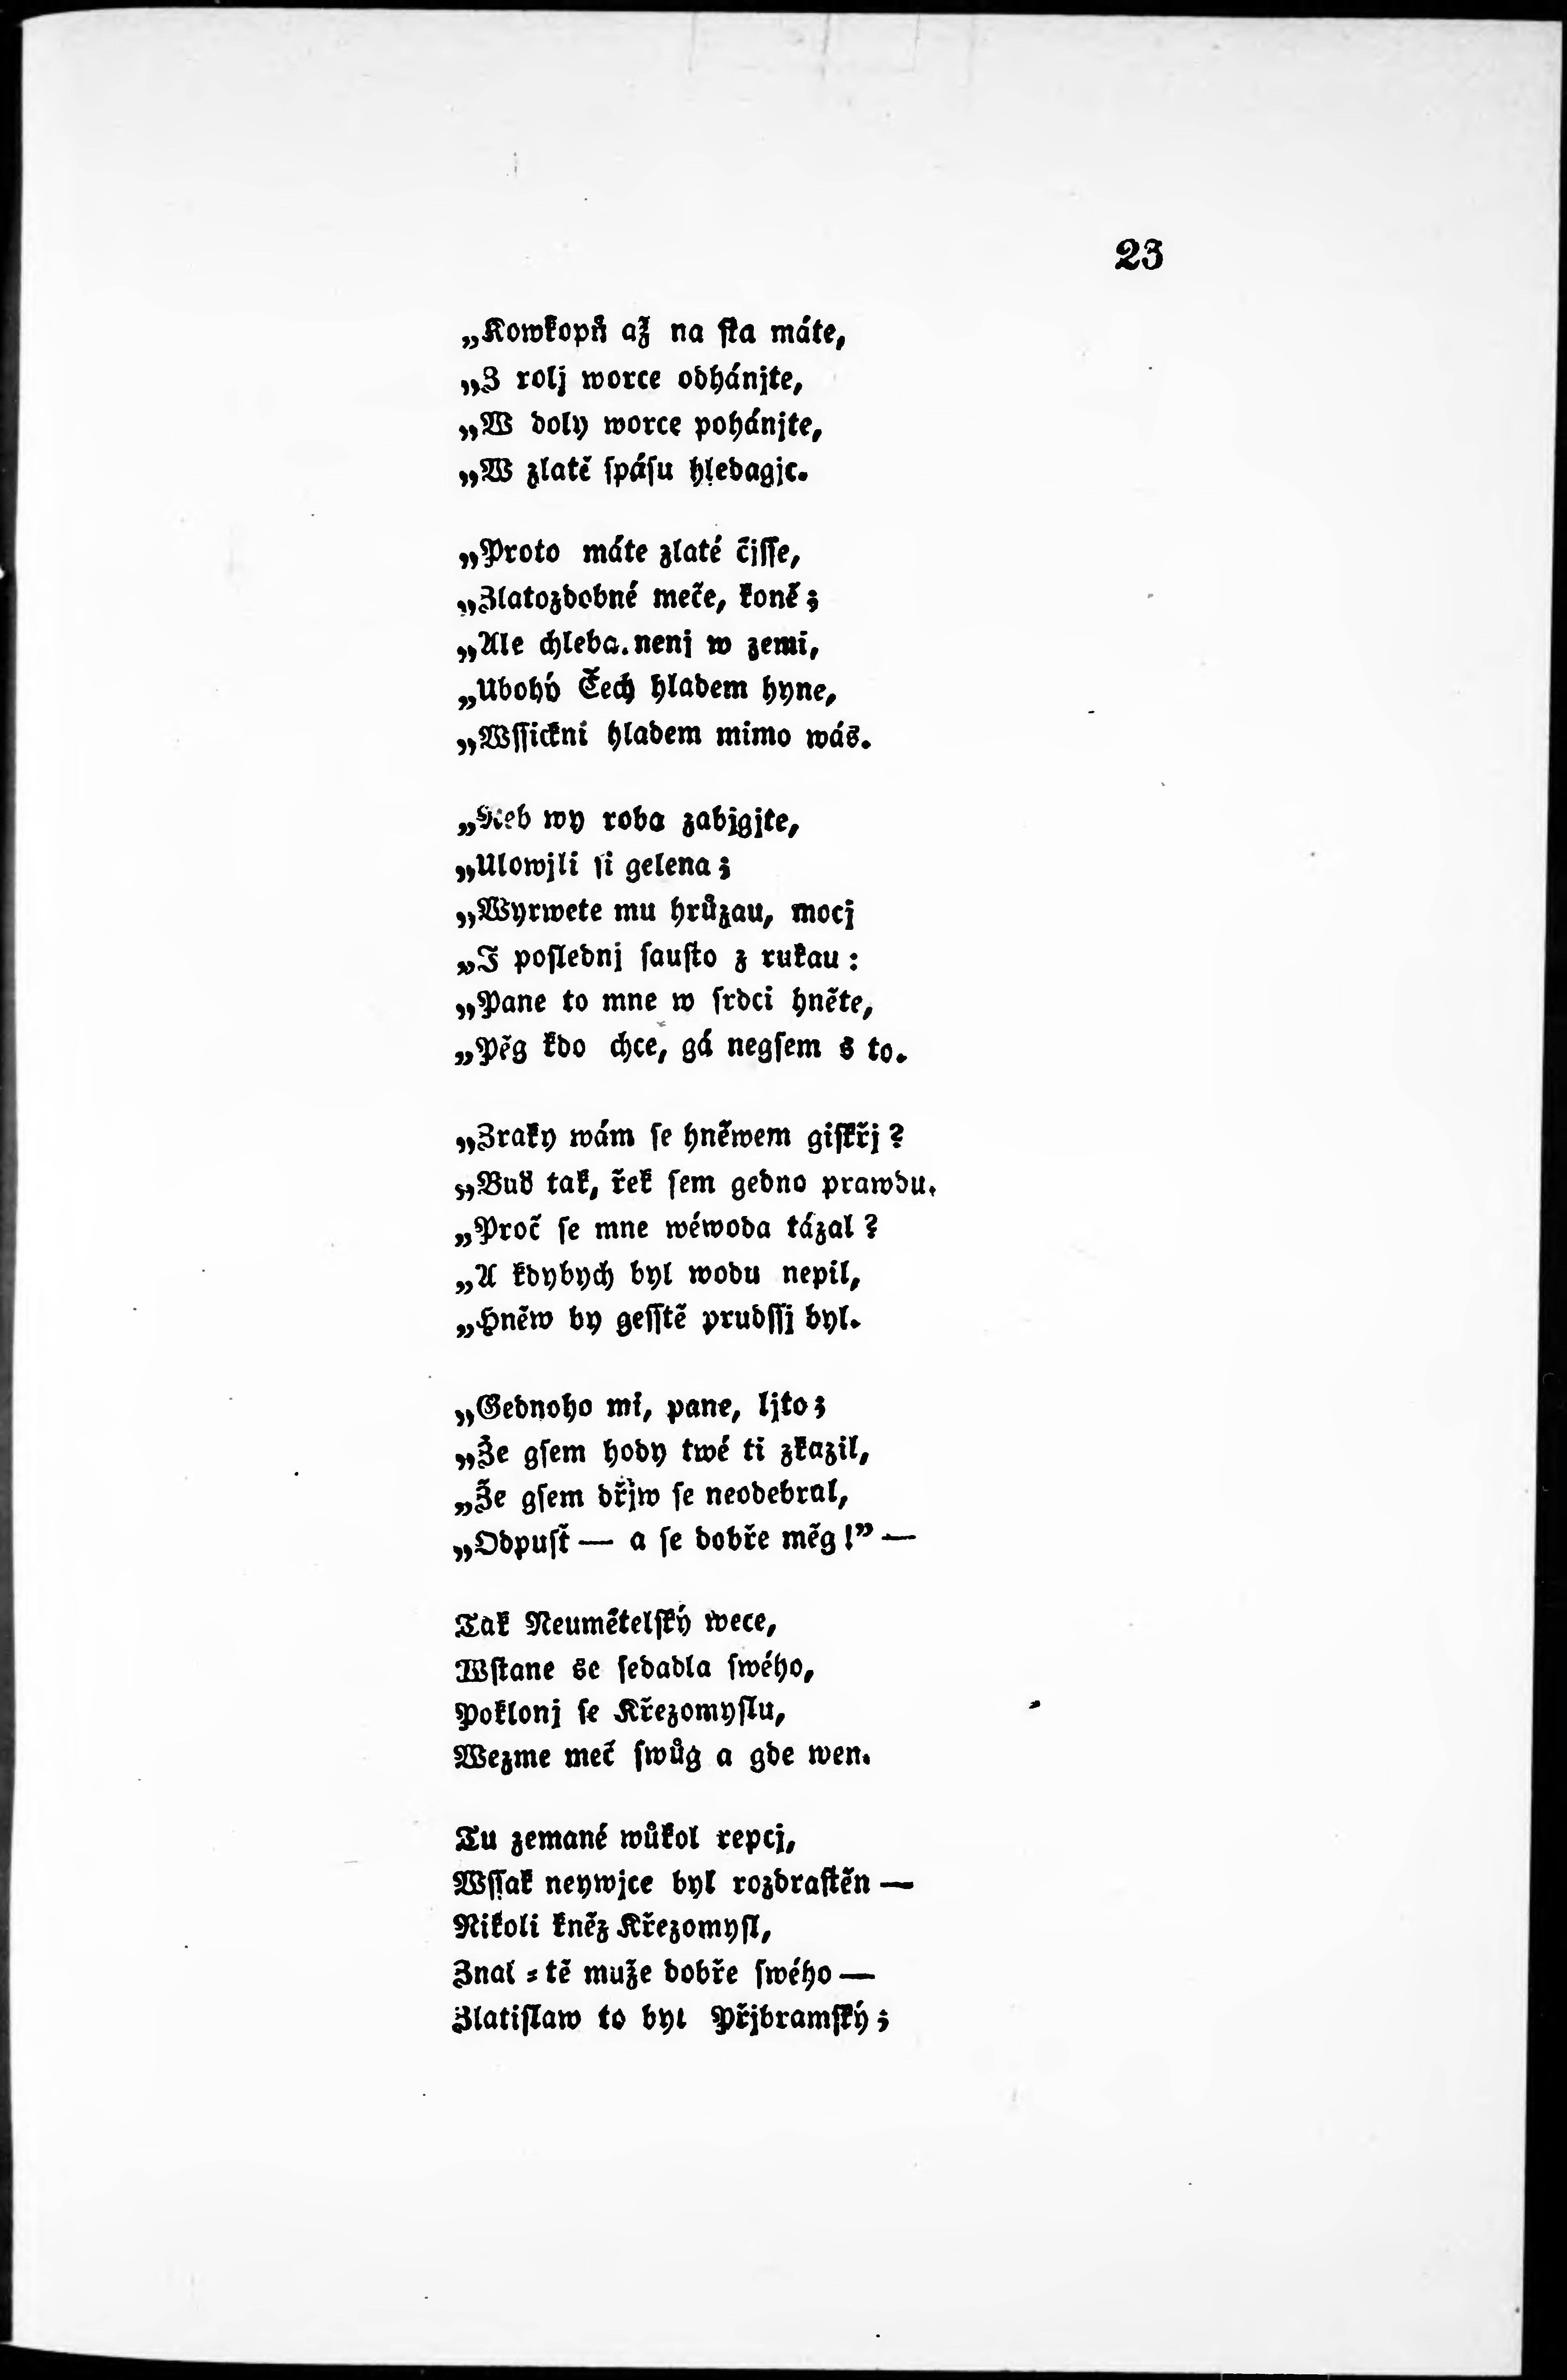 23
„Kowkopů až na sta máte,
„Z rolj worce odhánjte,
„W doly worce pohánjte,
„W zlatě spásu hledagjc.
„Proto máte zlaté čjsse,
„Zlatozdobné meče, koně;
„Ale chleba nenj w zemi,
„Ubohý Čech hladem hyne,
„Wssickni hladem mimo wás.
„Neb wy roba zabjgjte,
„Ulowjli si gelena;
„Wyrwete mu hrůzau, mocj
„I poslednj sausto z rukau:
„Pane to mne w srdci hněte,
„Pěg kdo chce, gá negsem s to.
„Zraky wám se hněwem giskřj?
„Buď tak, řek sem gedno prawdu.
„Proč se mne wéwoda tázal?
„A kdybych byl wodu nepil,
„Hněw by gesstě prudssj byl.
„Gednoho mi, pane, ljto;
„Že gsem hody twé ti zkazil,
„Že gsem dřjw se neodebral,
„Odpusť — a se dobře měg!” —
Tak Neumětelský wece,
Wstane se sedadla swého,
Poklonj se Křezomyslu,
Wezme meč swůg a gde wen.
Tu zemané wůkol repcj,
Wssak neywjce byl rozdrastěn —
Nikoli kněz Křezomysl,
Znal-tě muže dobře swého —
Zlatislaw to byl Přjbramský;